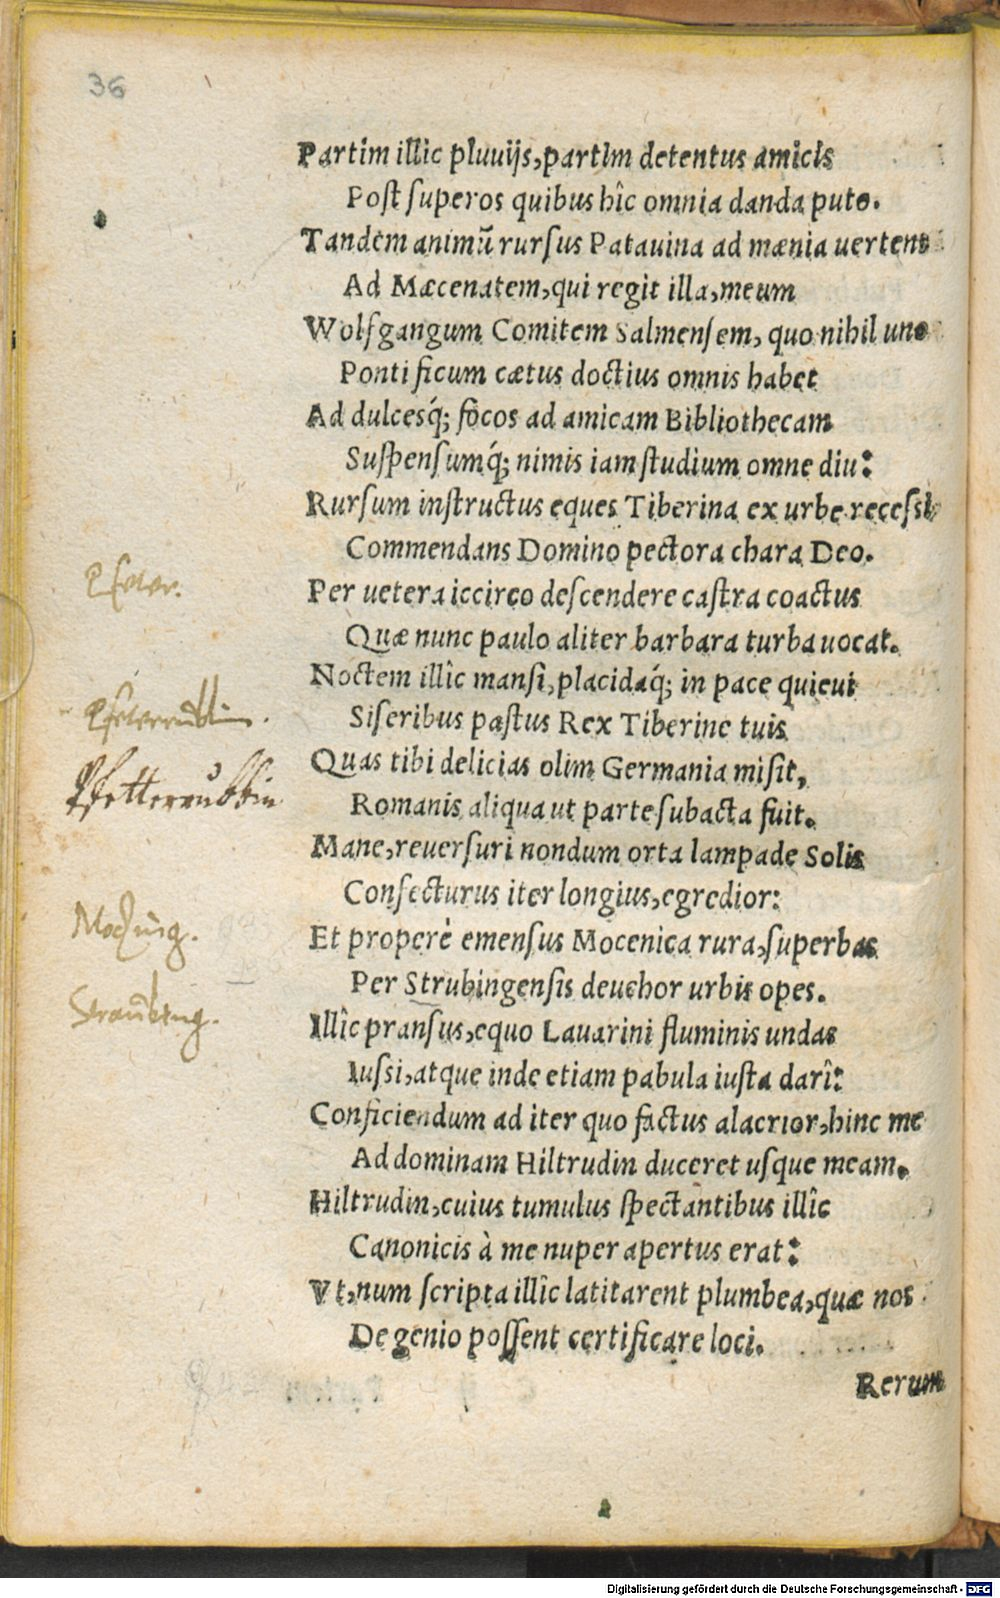 36
Partim illic pluuijs, partim detentus amicis
Post superos quibus hîc omnia danda puto.
Tandem animũ rursus Patauina ad mænia uertens
Ad Mæcenatem, qui regit illa, meum
Wolfgangum Comitem Salmensem, quo nihil uno
Pontificum cætus doctius omnis habet
Ad dulcesq́; focos ad amicam Bibliothecam
Suspensumq́; nimis iam studium omne diu:
Rursum instructus eques Tiberina ex urbe recessi
Commendans Domino pectora chara Deo.
Pfeter.
Per uetera iccirco descendere castra coactus
Quæ nunc paulo aliter barbara turba uocat.
Noctem illîc mansi, placidaq́; in pace quieui
Pfeterrubin.
Siseribus pastus Rex Tiberine tuis
Quas tibi delicias olim Germania misit,
Pfetterrubbin
Romanis aliqua ut parte subacta fuit.
Mane, reuersuri nondum orta lampade Solis
Confecturus iter longius, egredior:
Moching.
Et properè emensus Mocenica rura, superbas
Per Strubingensis deuehor urbis opes.
Straubing.
Illîc pransus, equo Lauarini fluminis undas
Iussi, atque inde etiam pabula iusta darî:
Conficiendum ad iter quo factus alacrior, hinc me
Ad dominam Hiltrudin duceret usque meam.
Hiltrudin, cuius tumulus spectantibus illîc
Canonicis à me nuper apertus erat:
Vt, num scripta illîc latitarent plumbea, quæ nos
De genio possent certificare loci.
Rerum
Digitalisierung gefördert durch die Deutsche Forschungsgemeinschaft - DFG